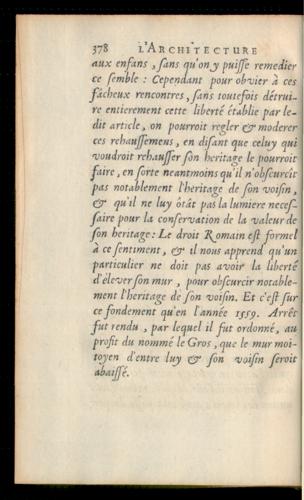 378 L'ARCHITECTURE
aux enfans, sans qu'on y puisse remedier
ce semble : Cependant pour obvier à ces
fâcheux rencontres, sans toutefois détrui-
re entierement cette liberté établie par le-
dit article, on pourroit regler & moderer
ces rehaussemeus, en disant que celuy qui
voudroit rehausser son heritage le pourroit
faire, en sorte neantmoins qu'il n'obscurcit
pas notablement l'heritage de son voisin,
& qu'il ne luy ôtât pas la lumiere neces-
saire pour la conservation de la valeur de
son heritage : Le droit Romain est formel
à ce sentiment, & il nous apprend qu'un
particulier ne doit pas avoir la liberté
d'élever son mur, pour obscurcir notable-
ment l'heritage de son voisin. Et c'est sur
ce fondement qu'en l'année 1559. Arrêt
fut rendu, par lequel il fut ordonné, au
profit du nommé le Gros, que le mur moi-
toyen d'entre luy & son voisin seroit
abaissé.